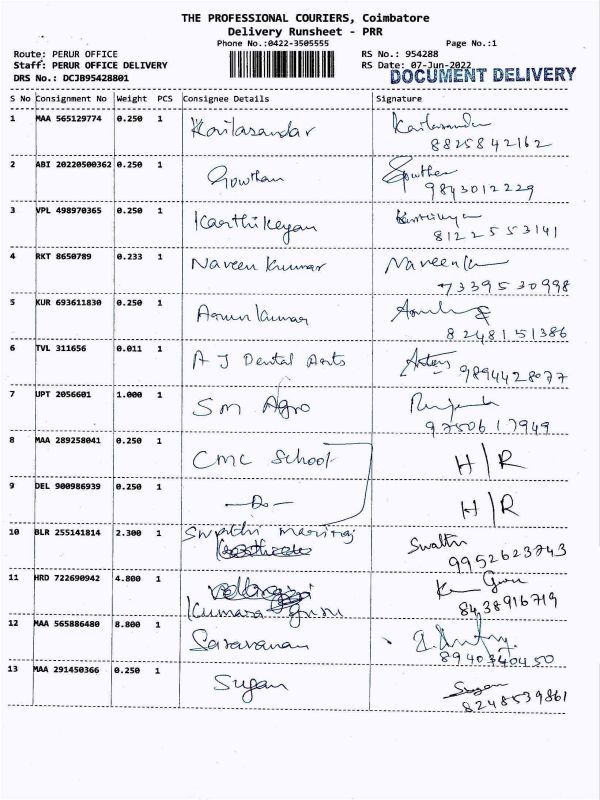 THE PROFESSIONAL COURIERS, Coimbatore
Delivery Runsheet - PRR
Phone No.:0422-3505555
Page No.:1
Route: PERUR OFFICE
RS No.: 954288
Staff: PERUR OFFICE DELIVERY
RS Date: 07-Jun-2022
DOCUMENT DELIVERY
DRS No.: DCJB95428801
S No Consignment No Weight PCS Consignee Details Signature
1 MAA 565129774 0.250 1 Kailasandar Kailasandar
8825842162
2 ABI 20220500362 0.250 1 Gowthan Gowthan
9843012229
3 VPL 498970365 0.250 1 Kaarthikeyan
8122553141
4 RKT 8650789 0.233 1 Naveen Kumar Naveen
7339530998
5 KUR 693611830 0.250 1 Arun Kumar
8248151386
6 TVL 311656 0.011 1 A J Dental Arts
9894428077
7 UPT 2056601 1.000 1 Sm Agro
9750617949
8 MAA 289258041 0.250 1 CMC School H/R
9 DEL 900986939 0.250 1 -Do- H/R
10 BLR 255141814 2.300 1 Swathi Mariraj Swathi
9952623743
11 HRD 722690942 4.800 1 Kumara Guru Guru
8438916719
12 MAA 565886480 8.800 1 Saravanan
8940340450
13 MAA 291450366 0.250 1 Sugan Sugan
8248539861